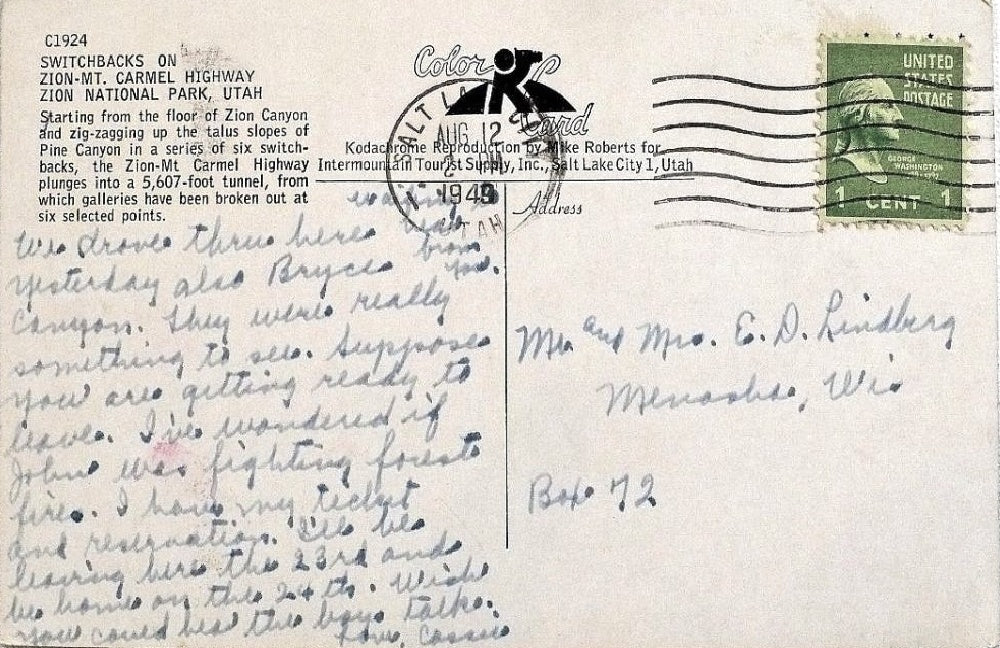 C1924
SWITCHBACKS ON
ZION-MT. CARMEL HIGHWAY
ZION NATIONAL PARK, UTAH
Starting from the floor of Zion Canyon
and zig-zagging up the talus slopes of
Pine Canyon in a series of six switch-
backs, the Zion-Mt Carmel Highway
plunges into a 5,607-foot tunnel, from
which galleries have been broken out at
six selected points.
Color
Card
Kodachrome Reproduction by Mike Roberts for
Intermountain Tourist Supply, Inc., Salt Lake City 1, Utah
SALT LAKE
AUG 12
1949
UTAH
UNITED
STATES
POSTAGE
GEORGE
WASHINGTON
1 CENT 1
Address
We drove thru here
yesterday also Bryce
Canyon. They were really
something to see. Suppose
you are getting ready to
leave. I've wondered if
John was fighting forest
fires. I have my ticket
and reservation. I'll be
leaving here the 23rd and
be home on the 24th. Wish
you could hear the boys talk.
Love, Cassie
from
you.
Mr. and Mrs. E. D. Lindberg
Menasha, Wis
Box 72